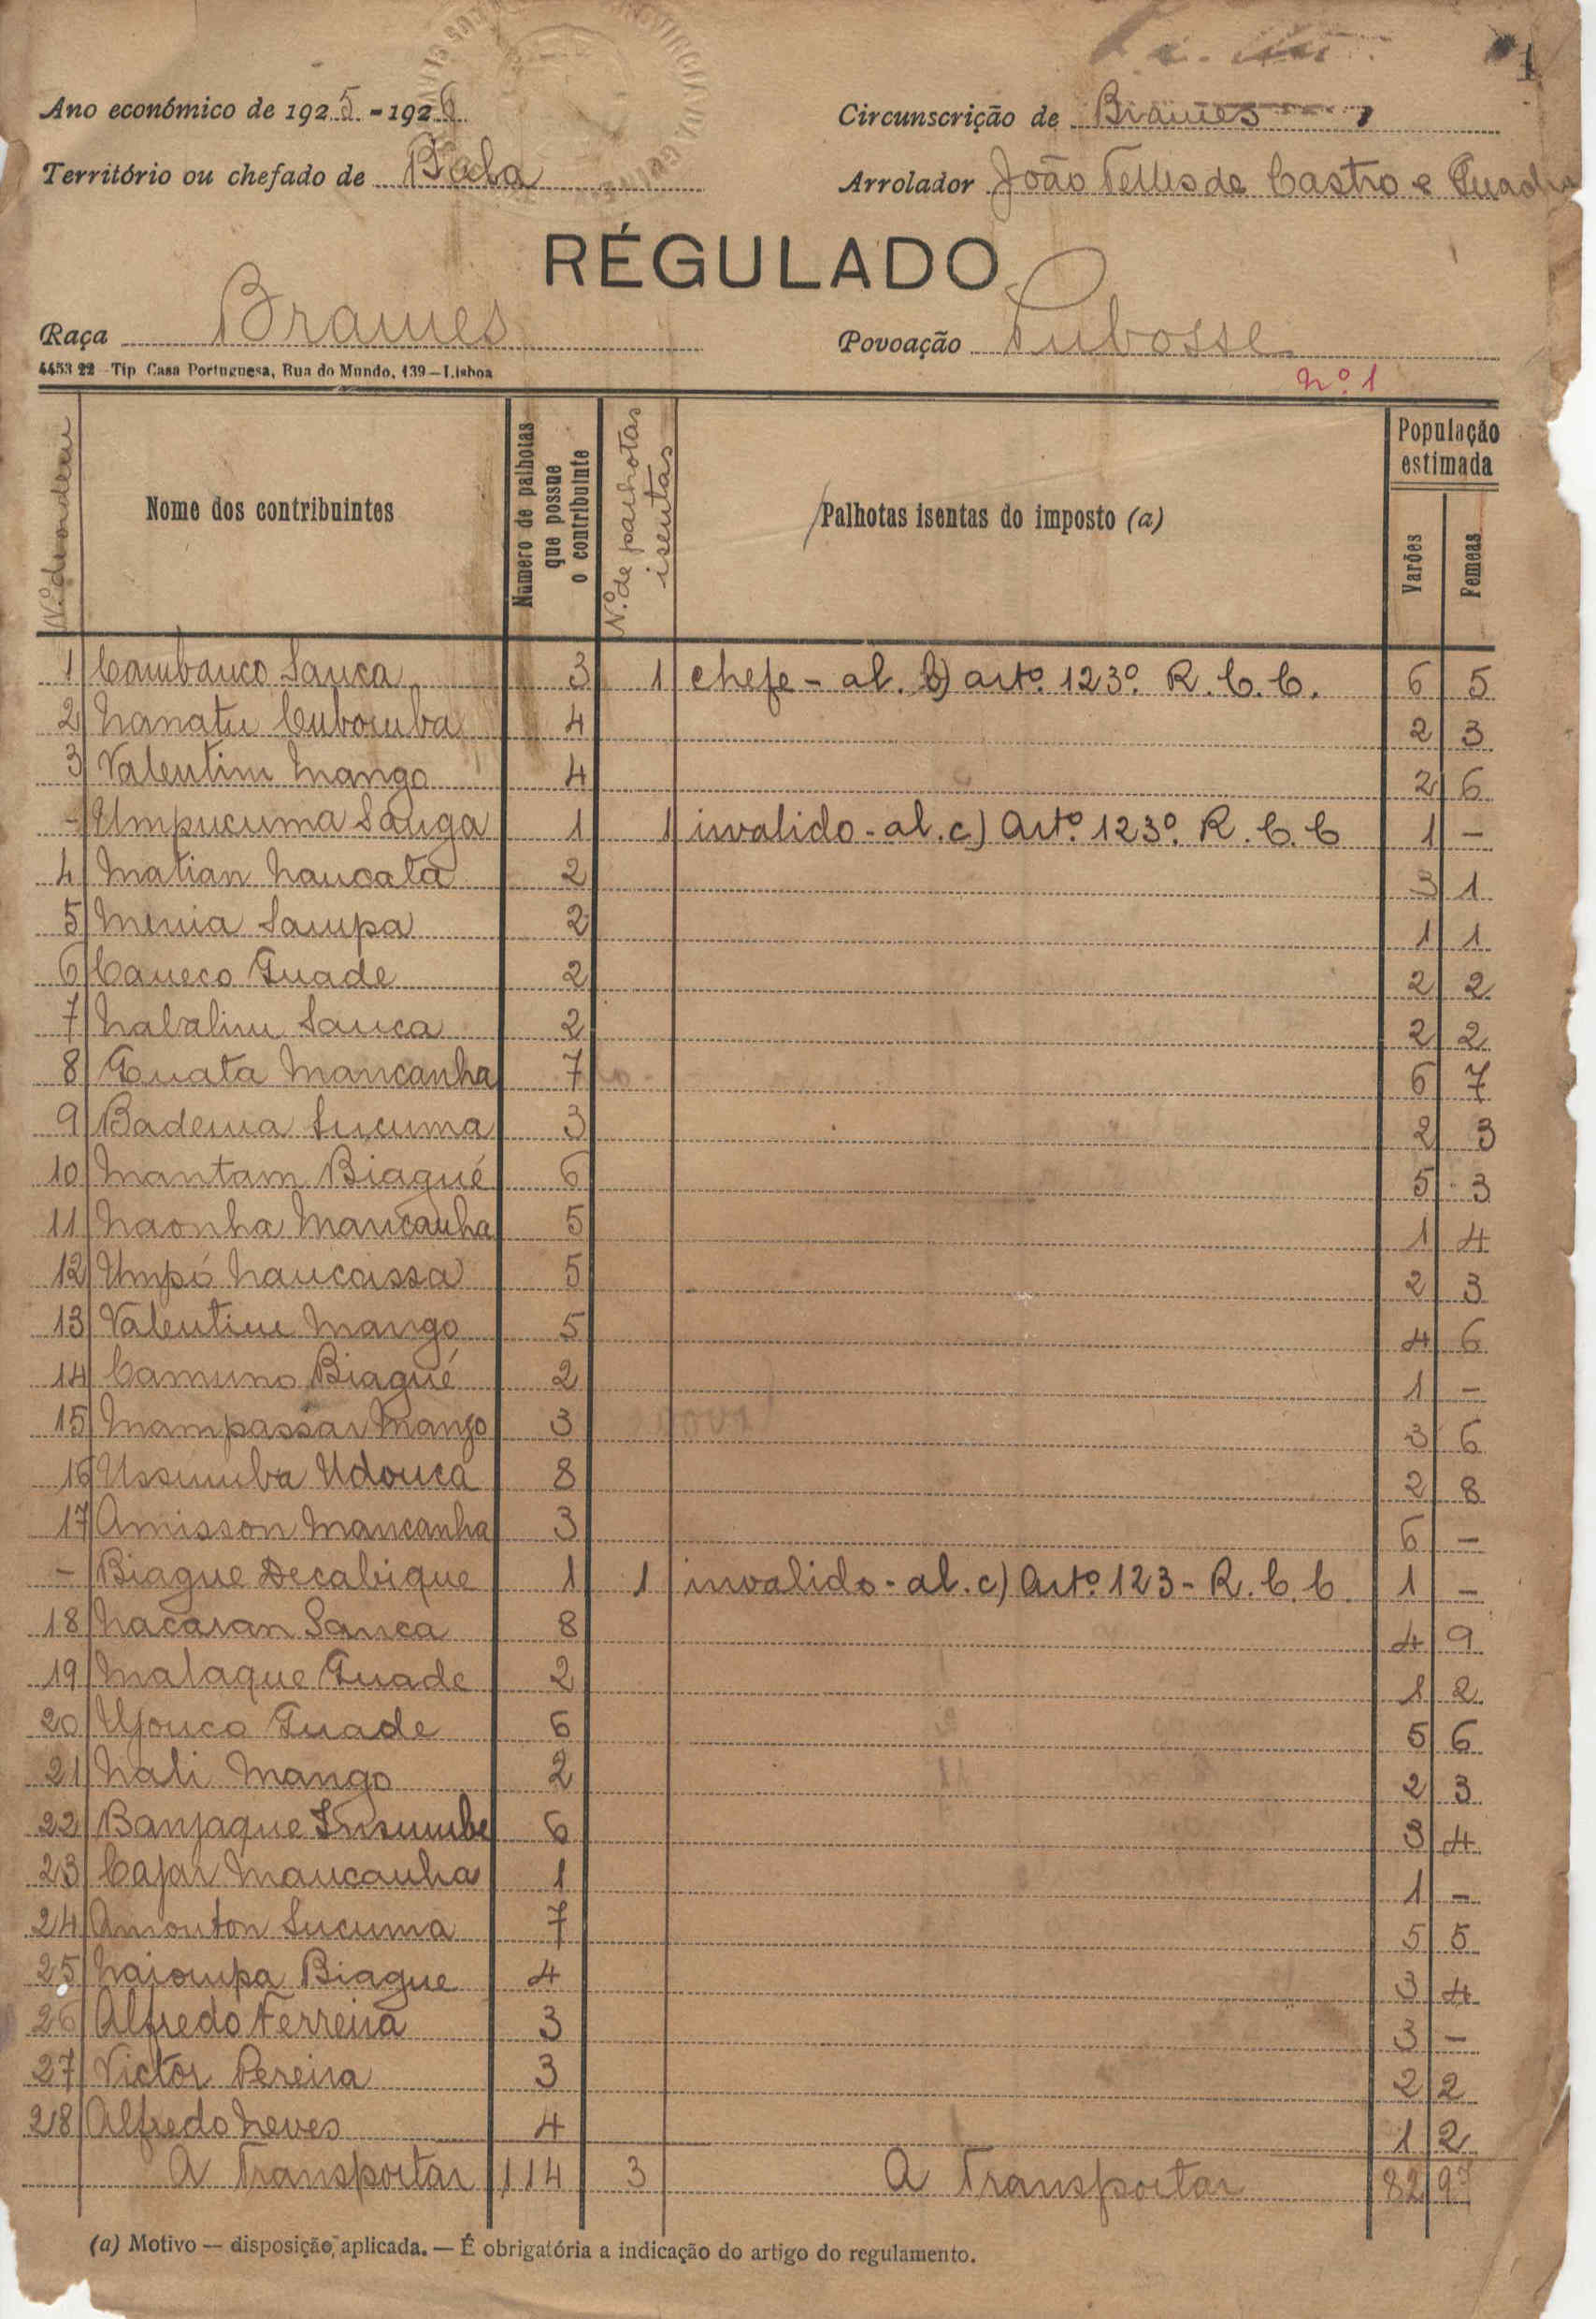 Ano económico de 1925-1926
Circunscrição de Brames
Território ou chefado de Bola
Arrolador João Telles de Castro e
RÉGULADO
Raça Brames
Povoação Pubosse
4453 22 – Tip Casa Portuguesa, Rua do Mundo, 139 – Lisboa
nº 1
N.º de ordem
Nome dos contribuintes
Número de palhotas que possue o contribuinte
N.º de palhotas isentas
Palhotas isentas do imposto (a)
População estimada
Varões
Femeas
1 Cambanco Sanca 3 1 chefe - al. b) artº. 123º. R. C. C. 6 5
2 Nanatu 4 2 3
3 Valentim Mango 4 2 6
- Umpucuma Sanga 1 1 invalido - al. c) Artº. 123º. R. C. C 1 -
4 Matian Naucata 2 3 1
5 Menia Sampa 2 1 1
6 Caneco Quade 2 2 2
7 Nabalim Sanca 2 2 2
8 Quata Mancanha 7 6 7
9 Badema Sucuma 3 2 3
10 Mantam Biagué 6 5 3
11 Naonha Mancanha 5 1 4
12 Umpó Naucassa 5 2 3
13 Valentim Mango 5 4 6
14 Camuno Biagué 2 1 -
15 Mampassar Mango 3 3 6
16 Ussumba Udouca 8 2 8
17 Amisson Mancanha 3 6 -
- Biague Decabique 1 1 invalido - al. c) Artº 123 - R. C. C. 1 -
18 Nacaran Sanca 8 4 9
19 Malaque Quade 2 1 2
20 Quade 6 5 6
21 Nali Mango 2 2 3
22 Banjaque Insumbe 6 3 4
23 Cajar Mancanha 1 1 -
24 Amonton Sucuma 7 5 5
25 Naioupa Biague 4 3 4
26 Alfredo Ferreira 3 3 -
27 Victor Pereira 3 2 2
28 Alfredo Neves 4 1 2
A Transportar 114 3 A Transportar 82 97
(a) Motivo — disposição aplicada. — É obrigatória a indicação do artigo do regulamento.